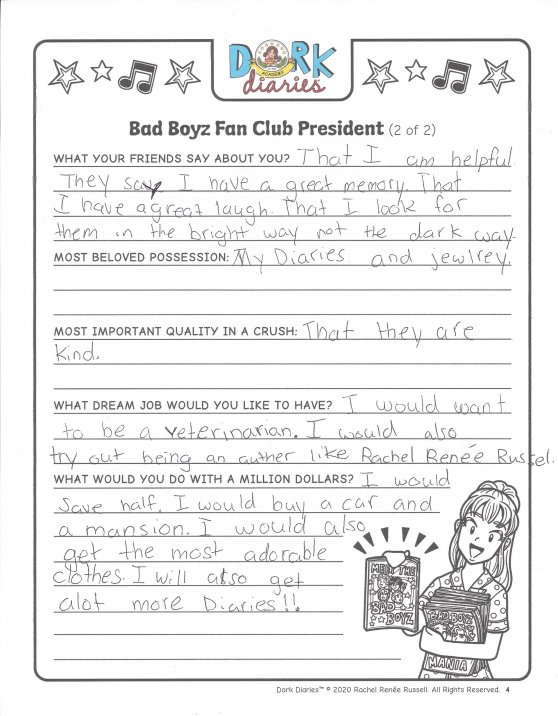 DORK
ACADEMY
diaries
Bad Boyz Fan Club President (2 of 2)
WHAT YOUR FRIENDS SAY ABOUT YOU? That I am helpful
They say I have a great memory. That
I have a great laugh. That I look for
them in the bright way not the dark way.
MOST BELOVED POSSESSION: My Diaries and jewlrey.
MOST IMPORTANT QUALITY IN A CRUSH: That they are
kind.
WHAT DREAM JOB WOULD YOU LIKE TO HAVE? I would want
to be a veterinarian. I would also
try out being an auther like Rachel Renée Russel.
WHAT WOULD YOU DO WITH A MILLION DOLLARS? I would
save half. I would buy a car and
a mansion. I would also
get the most adorable
clothes. I will also get
alot more Diaries!!
MEET THE
BAD
BOYZ
BAD BOYZ
MANIA
Dork Diaries™ © 2020 Rachel Renée Russell. All Rights Reserved. 4